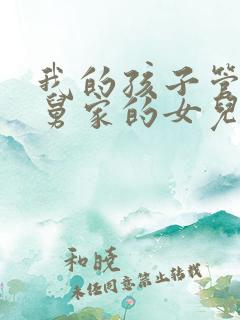 我的孩子管
舅家的女兒
和晓
未经同意禁止转载